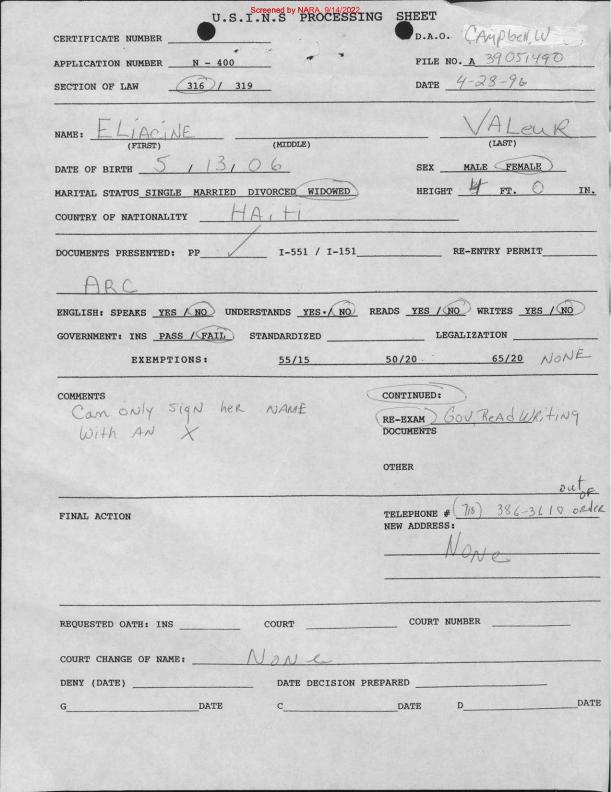 Screened by NARA, 9/14/2022
U.S.I.N.S PROCESSING SHEET
CERTIFICATE NUMBER
D.A.O. CAMPbell, W
APPLICATION NUMBER N - 400
FILE NO. A 39051490
SECTION OF LAW 316 / 319
DATE 4-23-96
NAME: ELiACiNE VALeuR
(FIRST) (MIDDLE) (LAST)
DATE OF BIRTH 5 / 13 / 06
SEX MALE FEMALE
MARITAL STATUS SINGLE MARRIED DIVORCED WIDOWED
HEIGHT 4 FT. 0 IN.
COUNTRY OF NATIONALITY HAiti
DOCUMENTS PRESENTED: PP ✓ I-551 / I-151 RE-ENTRY PERMIT
ARC
ENGLISH: SPEAKS YES / NO UNDERSTANDS YES / NO READS YES / NO WRITES YES / NO
GOVERNMENT: INS PASS / FAIL STANDARDIZED LEGALIZATION
EXEMPTIONS: 55/15 50/20 65/20 NONE
COMMENTS
Can only sign her NAME
With AN X
CONTINUED:
RE-EXAM Gov ReAd WRiting
DOCUMENTS
OTHER
out OF order
FINAL ACTION
TELEPHONE # (718) 386-3610
NEW ADDRESS:
None
REQUESTED OATH: INS COURT COURT NUMBER
COURT CHANGE OF NAME: None
DENY (DATE) DATE DECISION PREPARED
G DATE C DATE D DATE